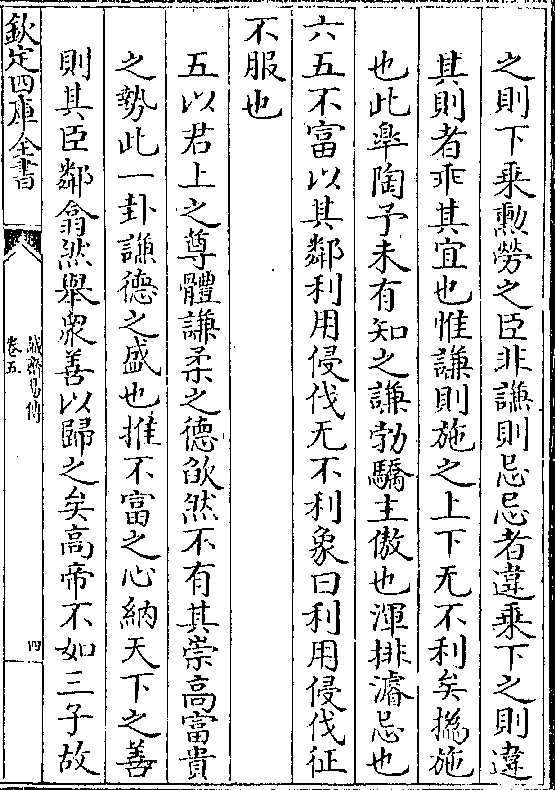 之則下乗勲勞之臣非謙則忌忌者違乗下之則違
其則者乖其宜也惟謙則施之上下无不利矣撝施
也此臯陶予未有知之謙勃驕主傲也渾排濬忌也
六五不富以其鄰利用侵伐无不利象曰利用侵伐征
不服也
五以君上之尊體謙柔之德欿然不有其崇高富貴
之勢此一卦謙德之盛也推不富之心納天下之善
則其臣鄰翕然舉衆善以歸之矣高帝不如三子故
欽定四庫全書
誠齋易傳
卷五
四